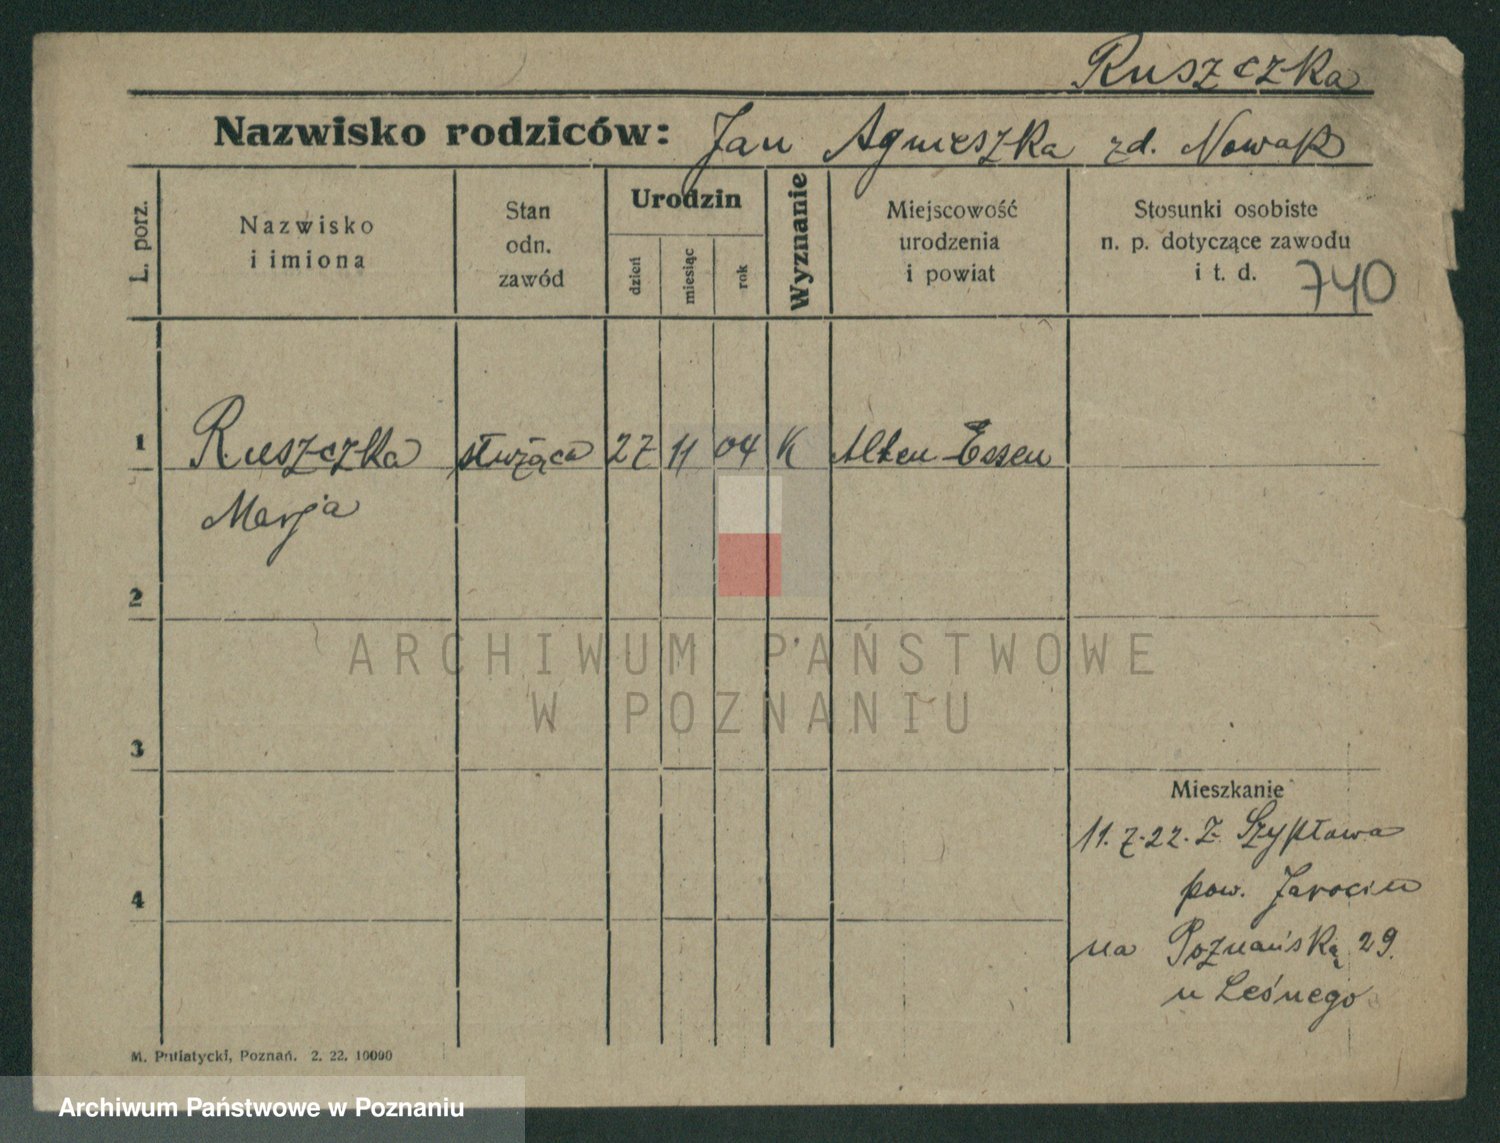 Ruszczka
Nazwisko rodziców: Jan Agnieszka zd. Nowak
L. porz.
Nazwisko
i imiona
Stan
odn.
zawód
Urodzin
dzień
miesiąc
rok
Wyznanie
Miejscowość
urodzenia
i powiat
Stosunki osobiste
n. p. dotyczące zawodu
i t. d.
740
1 Ruszczka służąca 27 11 04 K Alten-Essen
Marja
2
3
4
Mieszkanie
11. 7. 22. Z Szypłowa
pow. Jarocin
na Poznańską 29.
u Leśnego
M. Putiatycki, Poznań. 2. 22. 10000
ARCHIWUM PAŃSTWOWE
W POZNANIU
Archiwum Państwowe w Poznaniu